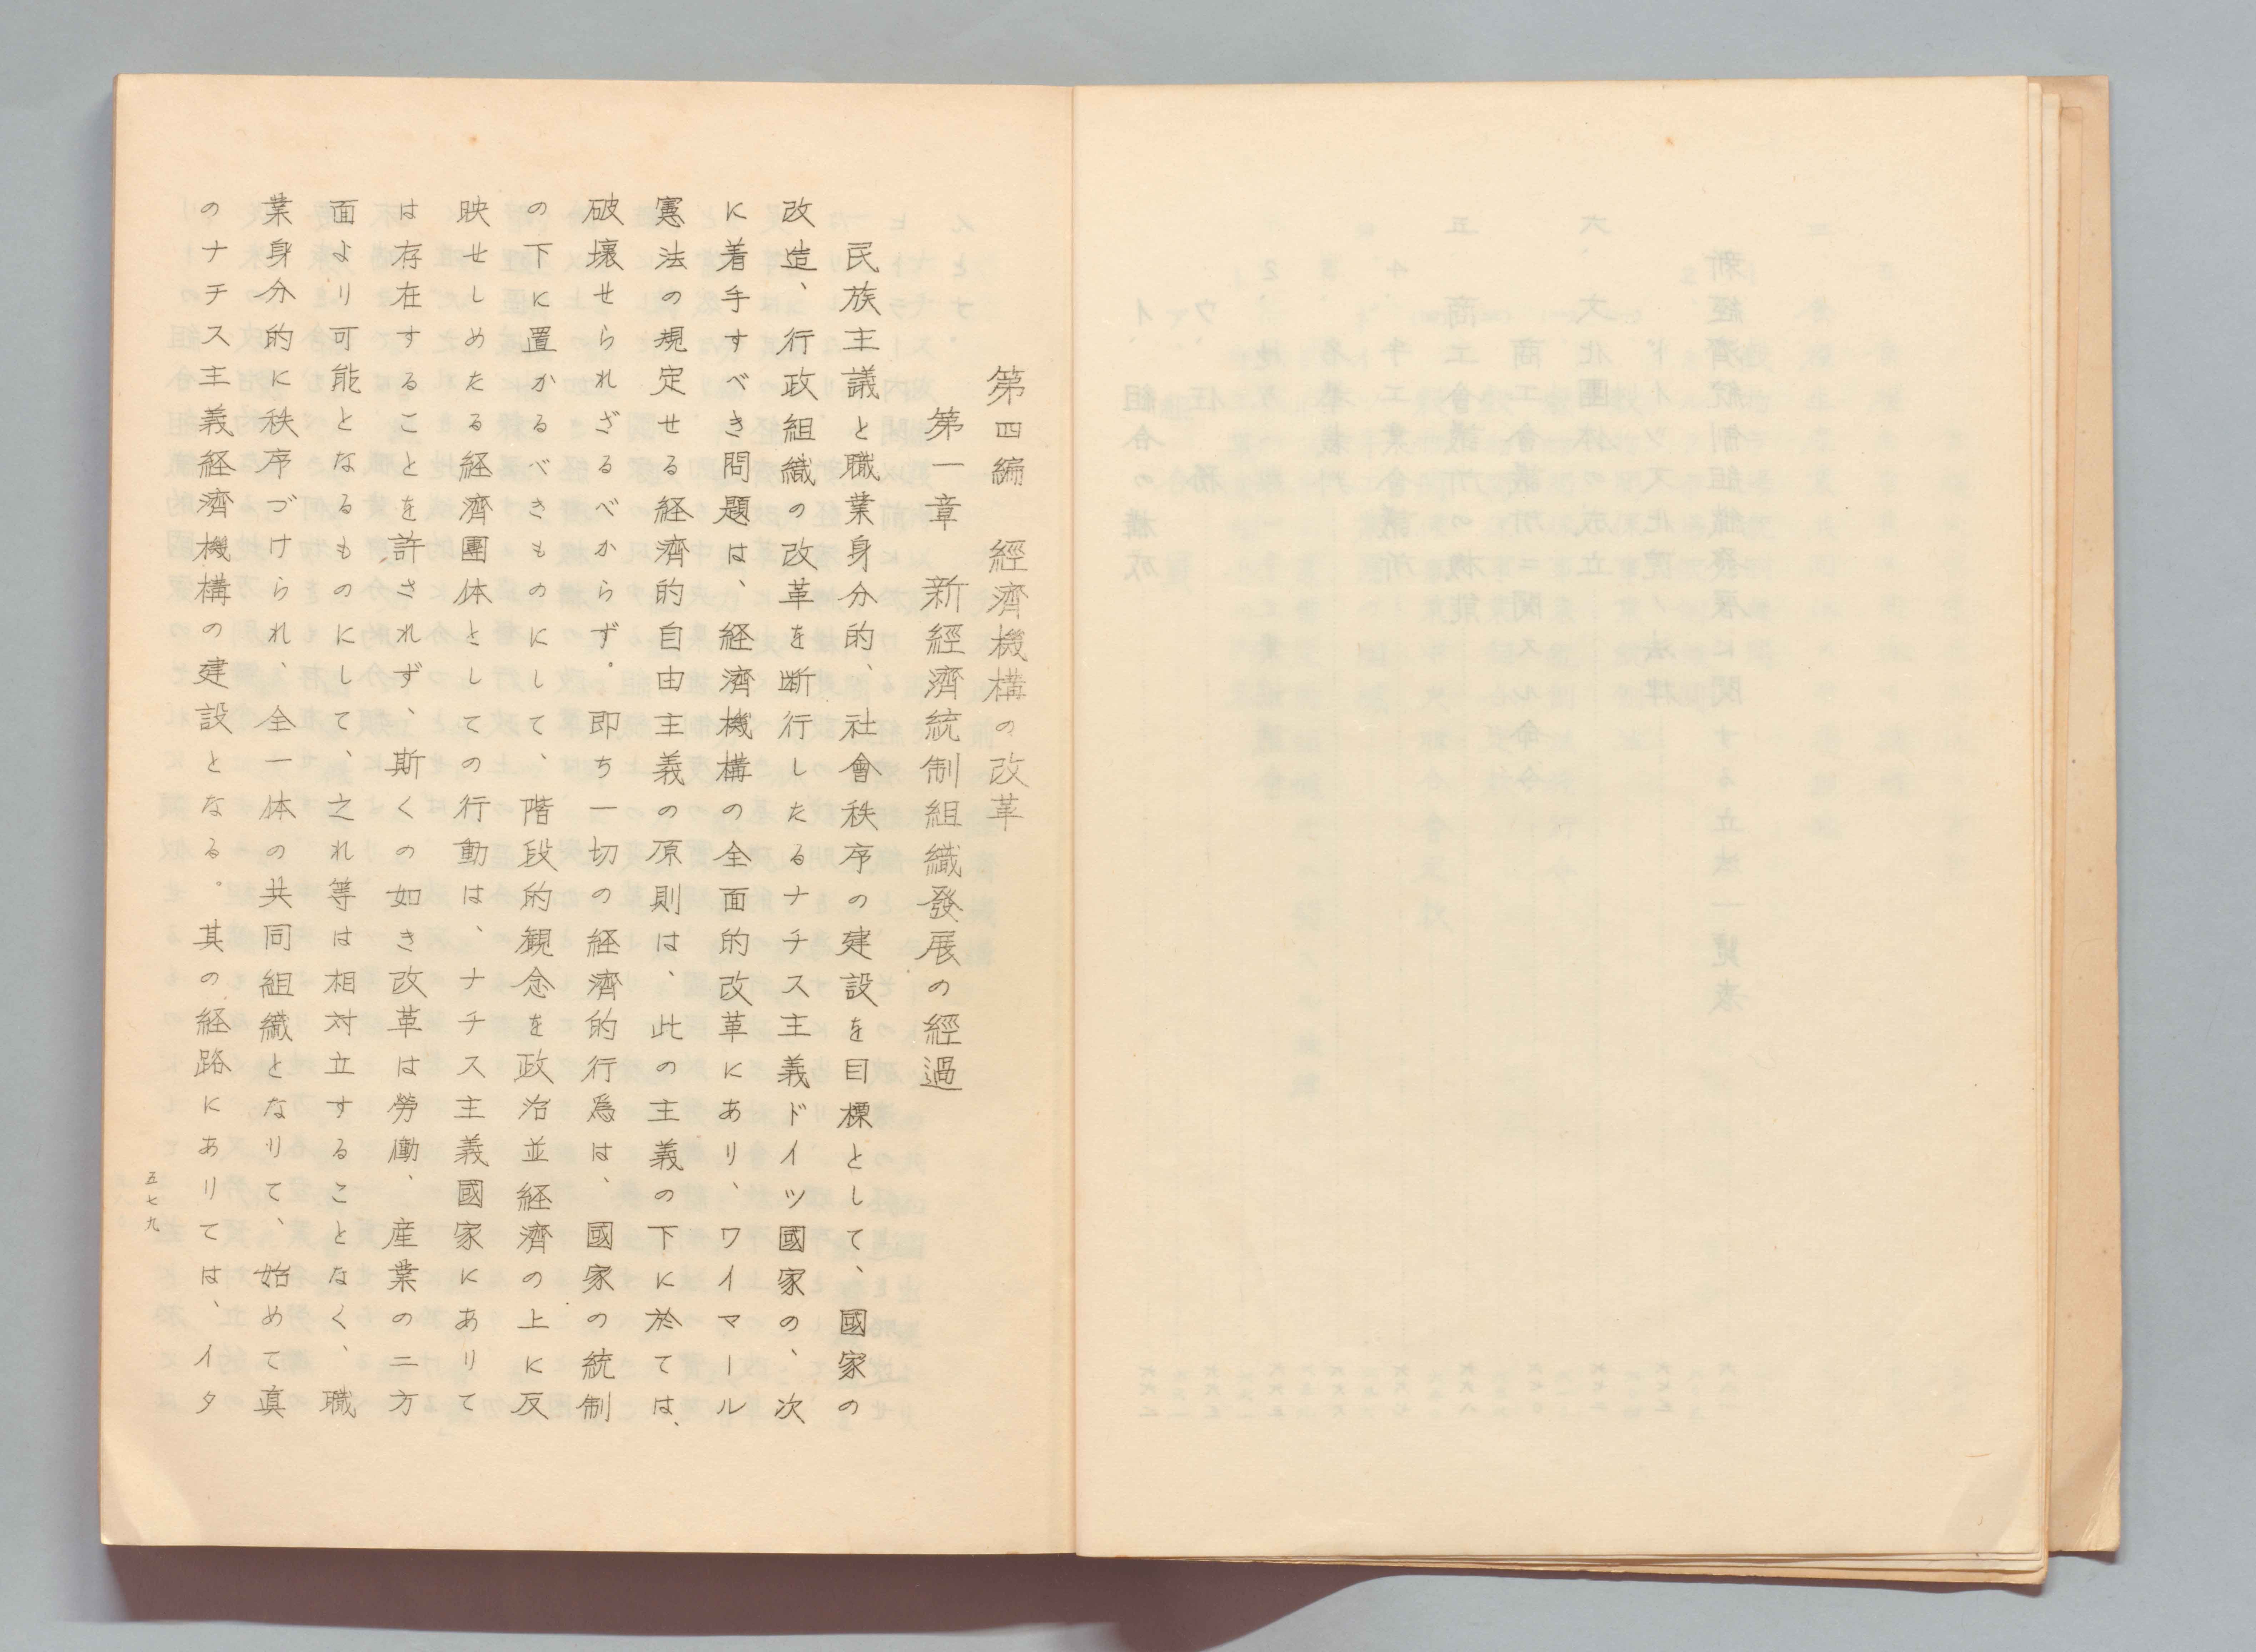 第四編　經濟機構の改革
第一章　新經濟統制組織發展の經過
民族主議と職業身分的、社會秩序の建設を目標として、國家の
改造、行政組織の改革を断行したるナチス主義ドイツ國家の、次
に着手すべき問題は、経濟機構の全面的改革にあり、ワイマール
憲法の規定せる経濟的自由主義の原則は、此の主義の下に於ては、
破壊せられざるべからず。即ち一切の経濟的行爲は、國家の統制
の下に置かるべきものにして、階段的観念を政治並経濟の上に反
映せしめたる経濟團体としての行動は、ナチス主義國家にありて
は存在することを許されず、斯くの如き改革は勞働、産業の二方
面より可能となるものにして、之れ等は相対立することなく、職
業身分的に秩序づけられ、全一体の共同組織となりて、始めて真
のナチス主義経濟機構の建設となる。其の経路にありては、イタ
五七九